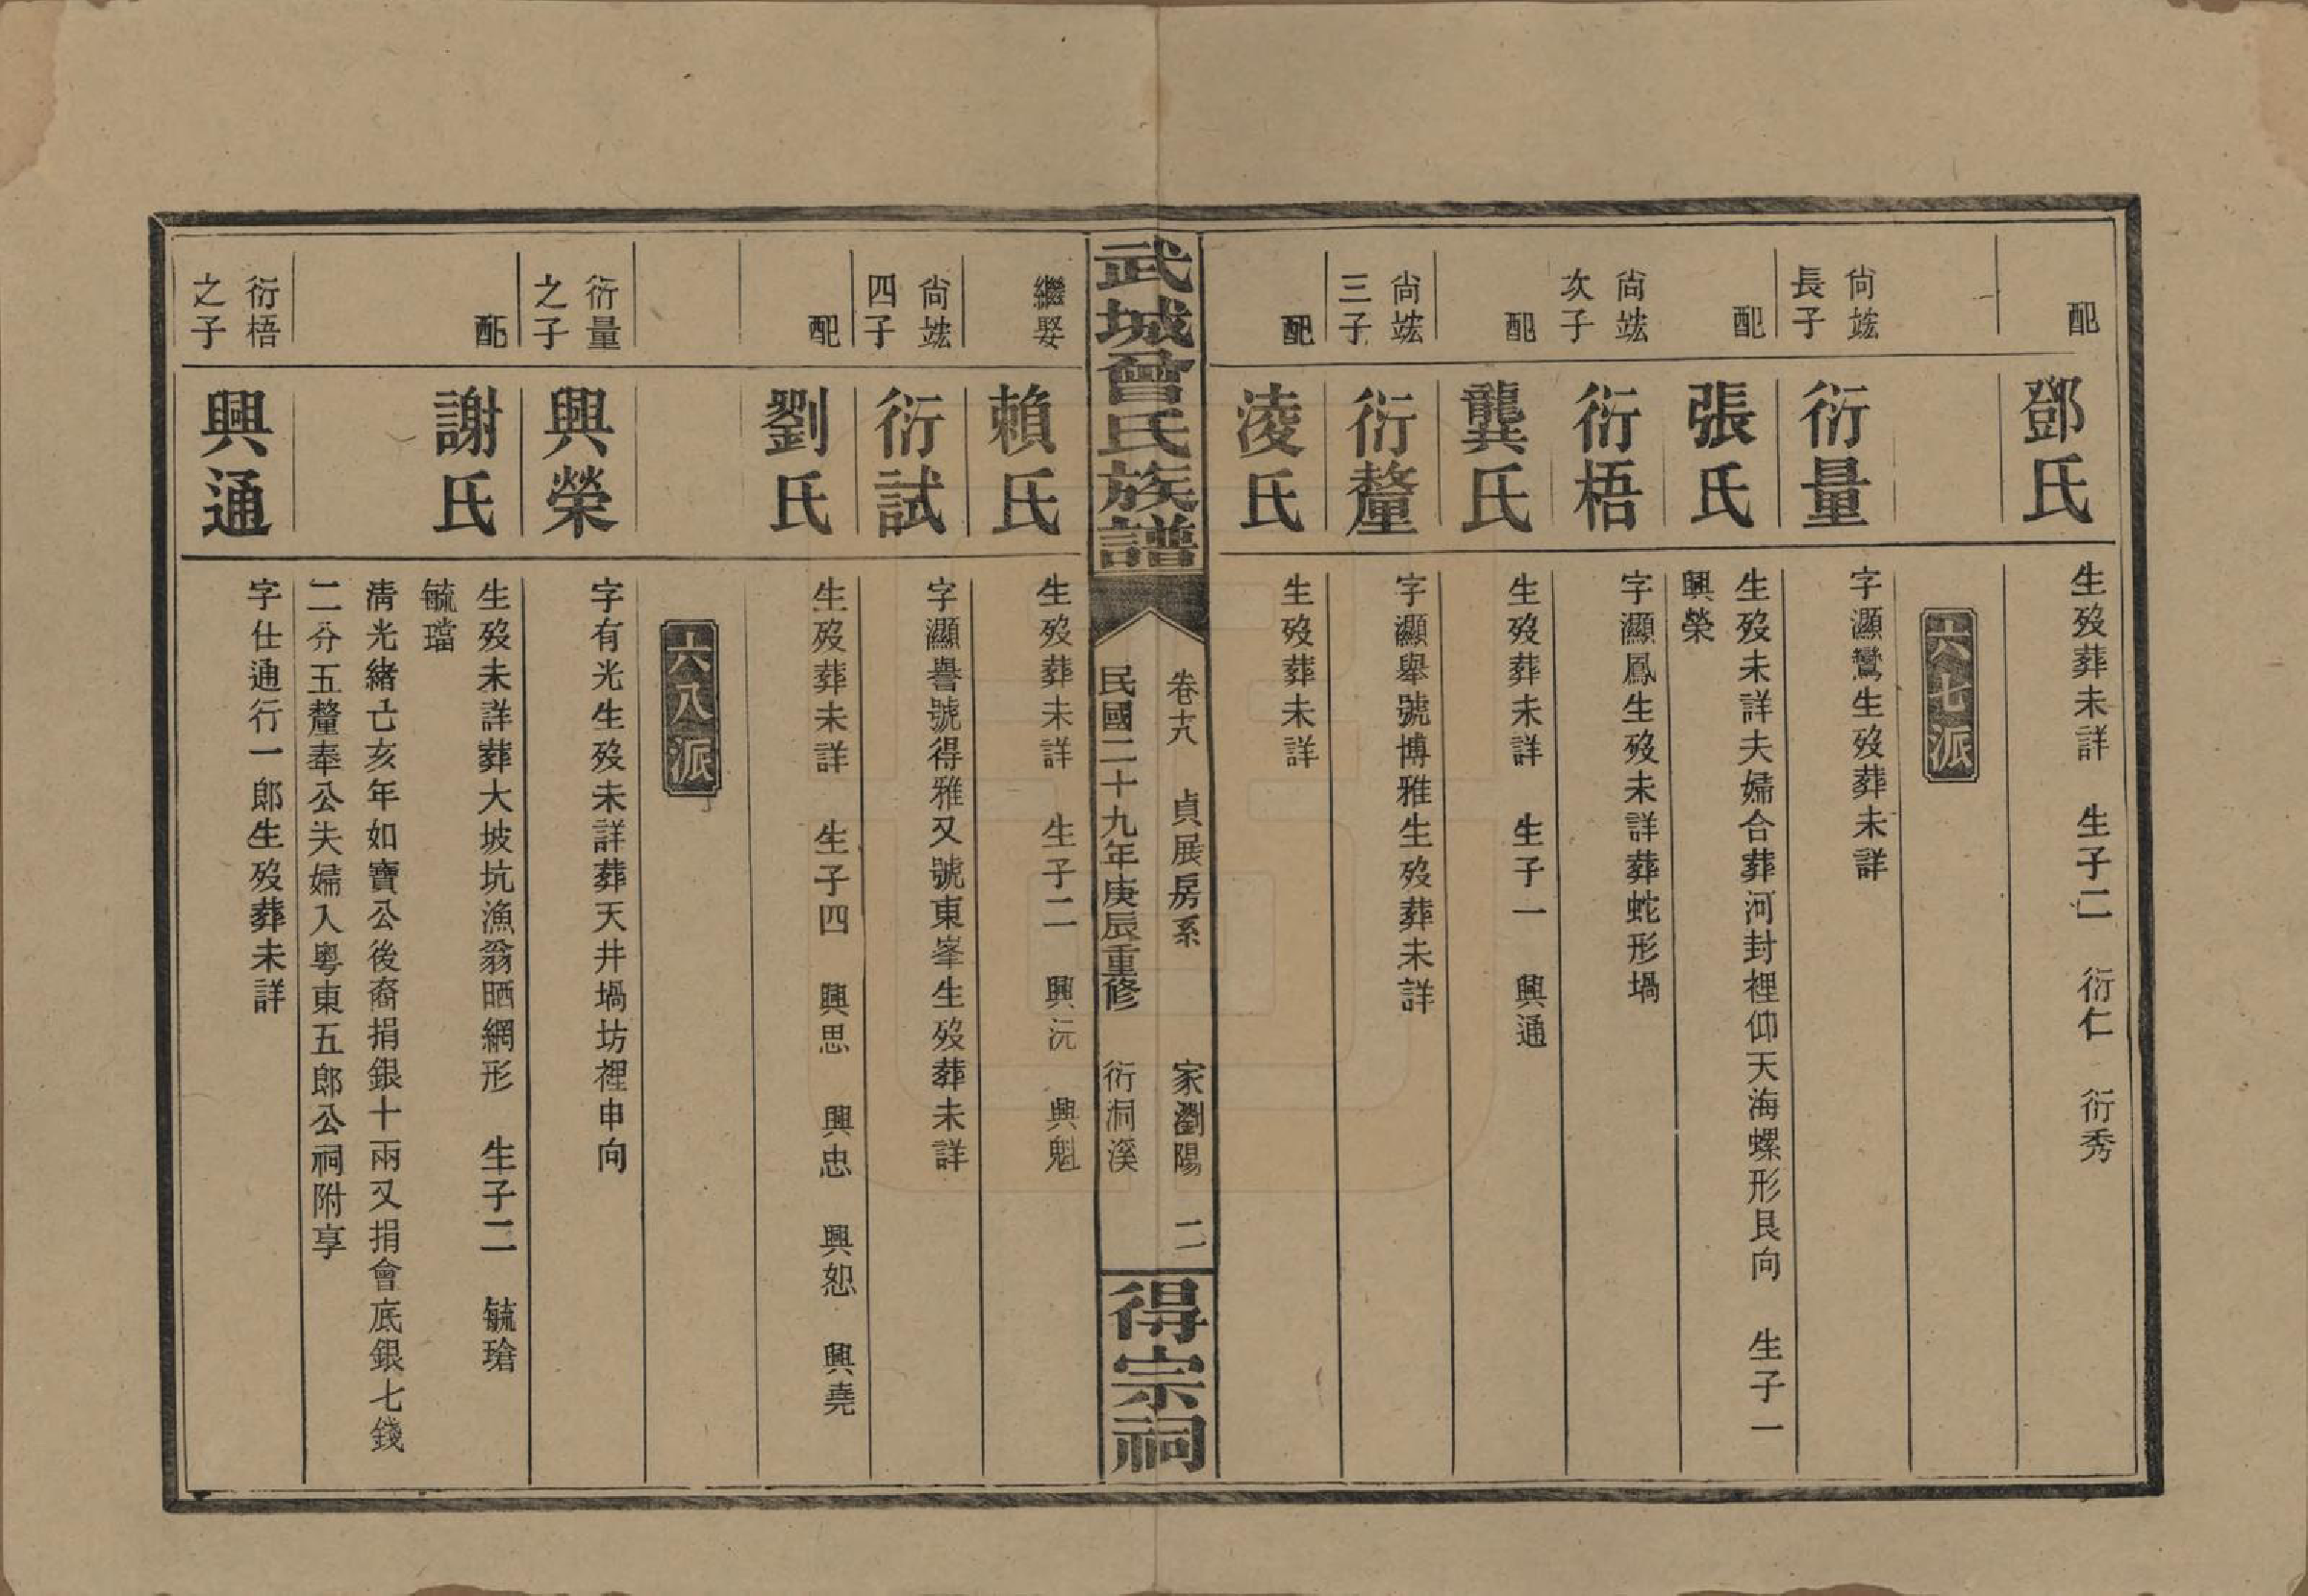 配
鄧氏
生歿葬未詳 生子二 衍仁 衍秀
六七派
尙竤
長子
衍量
字灝鸞生歿葬未詳
配
張氏
生歿未詳夫婦合葬河封裡仰天海螺形艮向 生子一
興榮
尙竤
次子
衍梧
字灝鳳生歿未詳葬蛇形堝
配
龔氏
生歿葬未詳 生子一 興通
尙竤
三子
衍釐
字灝舉號博雅生歿葬未詳
配
淩氏
生歿葬未詳
武城曾氏族譜
卷十八 貞展房系 家瀏陽 二
民國二十九年庚辰重修 衍洞溪
得宗祠
繼娶
賴氏
生歿葬未詳 生子二 興沅 興魁
尙竤
四子
衍試
字灝譽號得雅又號東峯生歿葬未詳
配
劉氏
生歿葬未詳 生子四 興思 興忠 興恕 興堯
六八派
衍量
之子
興榮
字有光生歿未詳葬天井堝坊裡申向
配
謝氏
生歿未詳葬大坡坑漁翁晒網形 生子二 毓瑲
毓璫
淸光緒亡亥年如寶公後裔捐銀十兩又捐會底銀七錢
二分五釐奉公夫婦入粵東五郎公祠附享
衍梧
之子
興通
字仕通行一郎生歿葬未詳